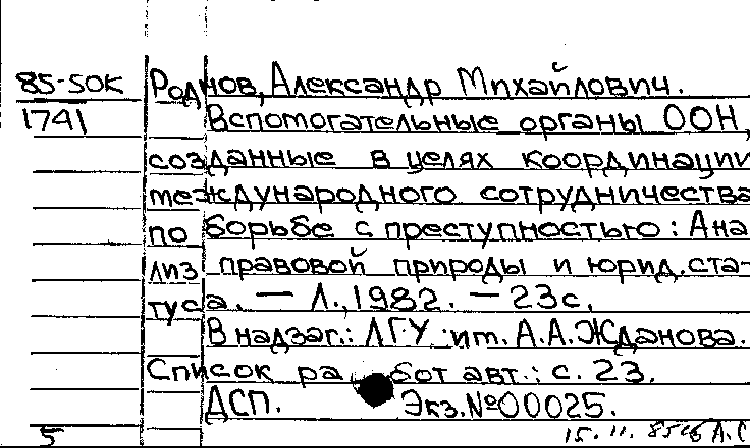 85-50К Роднов, Александр Михайлович.
1741 Вспомогательные органы ООН,
созданные в целях координации
международного сотрудничества
по борьбе с преступностью: Ана-
лиз правовой природы и юрид. ста-
туса. — Л., 1982. — 23с.
В надзаг.: ЛГУ им. А.А.Жданова.
Список работ авт.: с. 23.
ДСП. Экз.№00025.
5 15.11.85